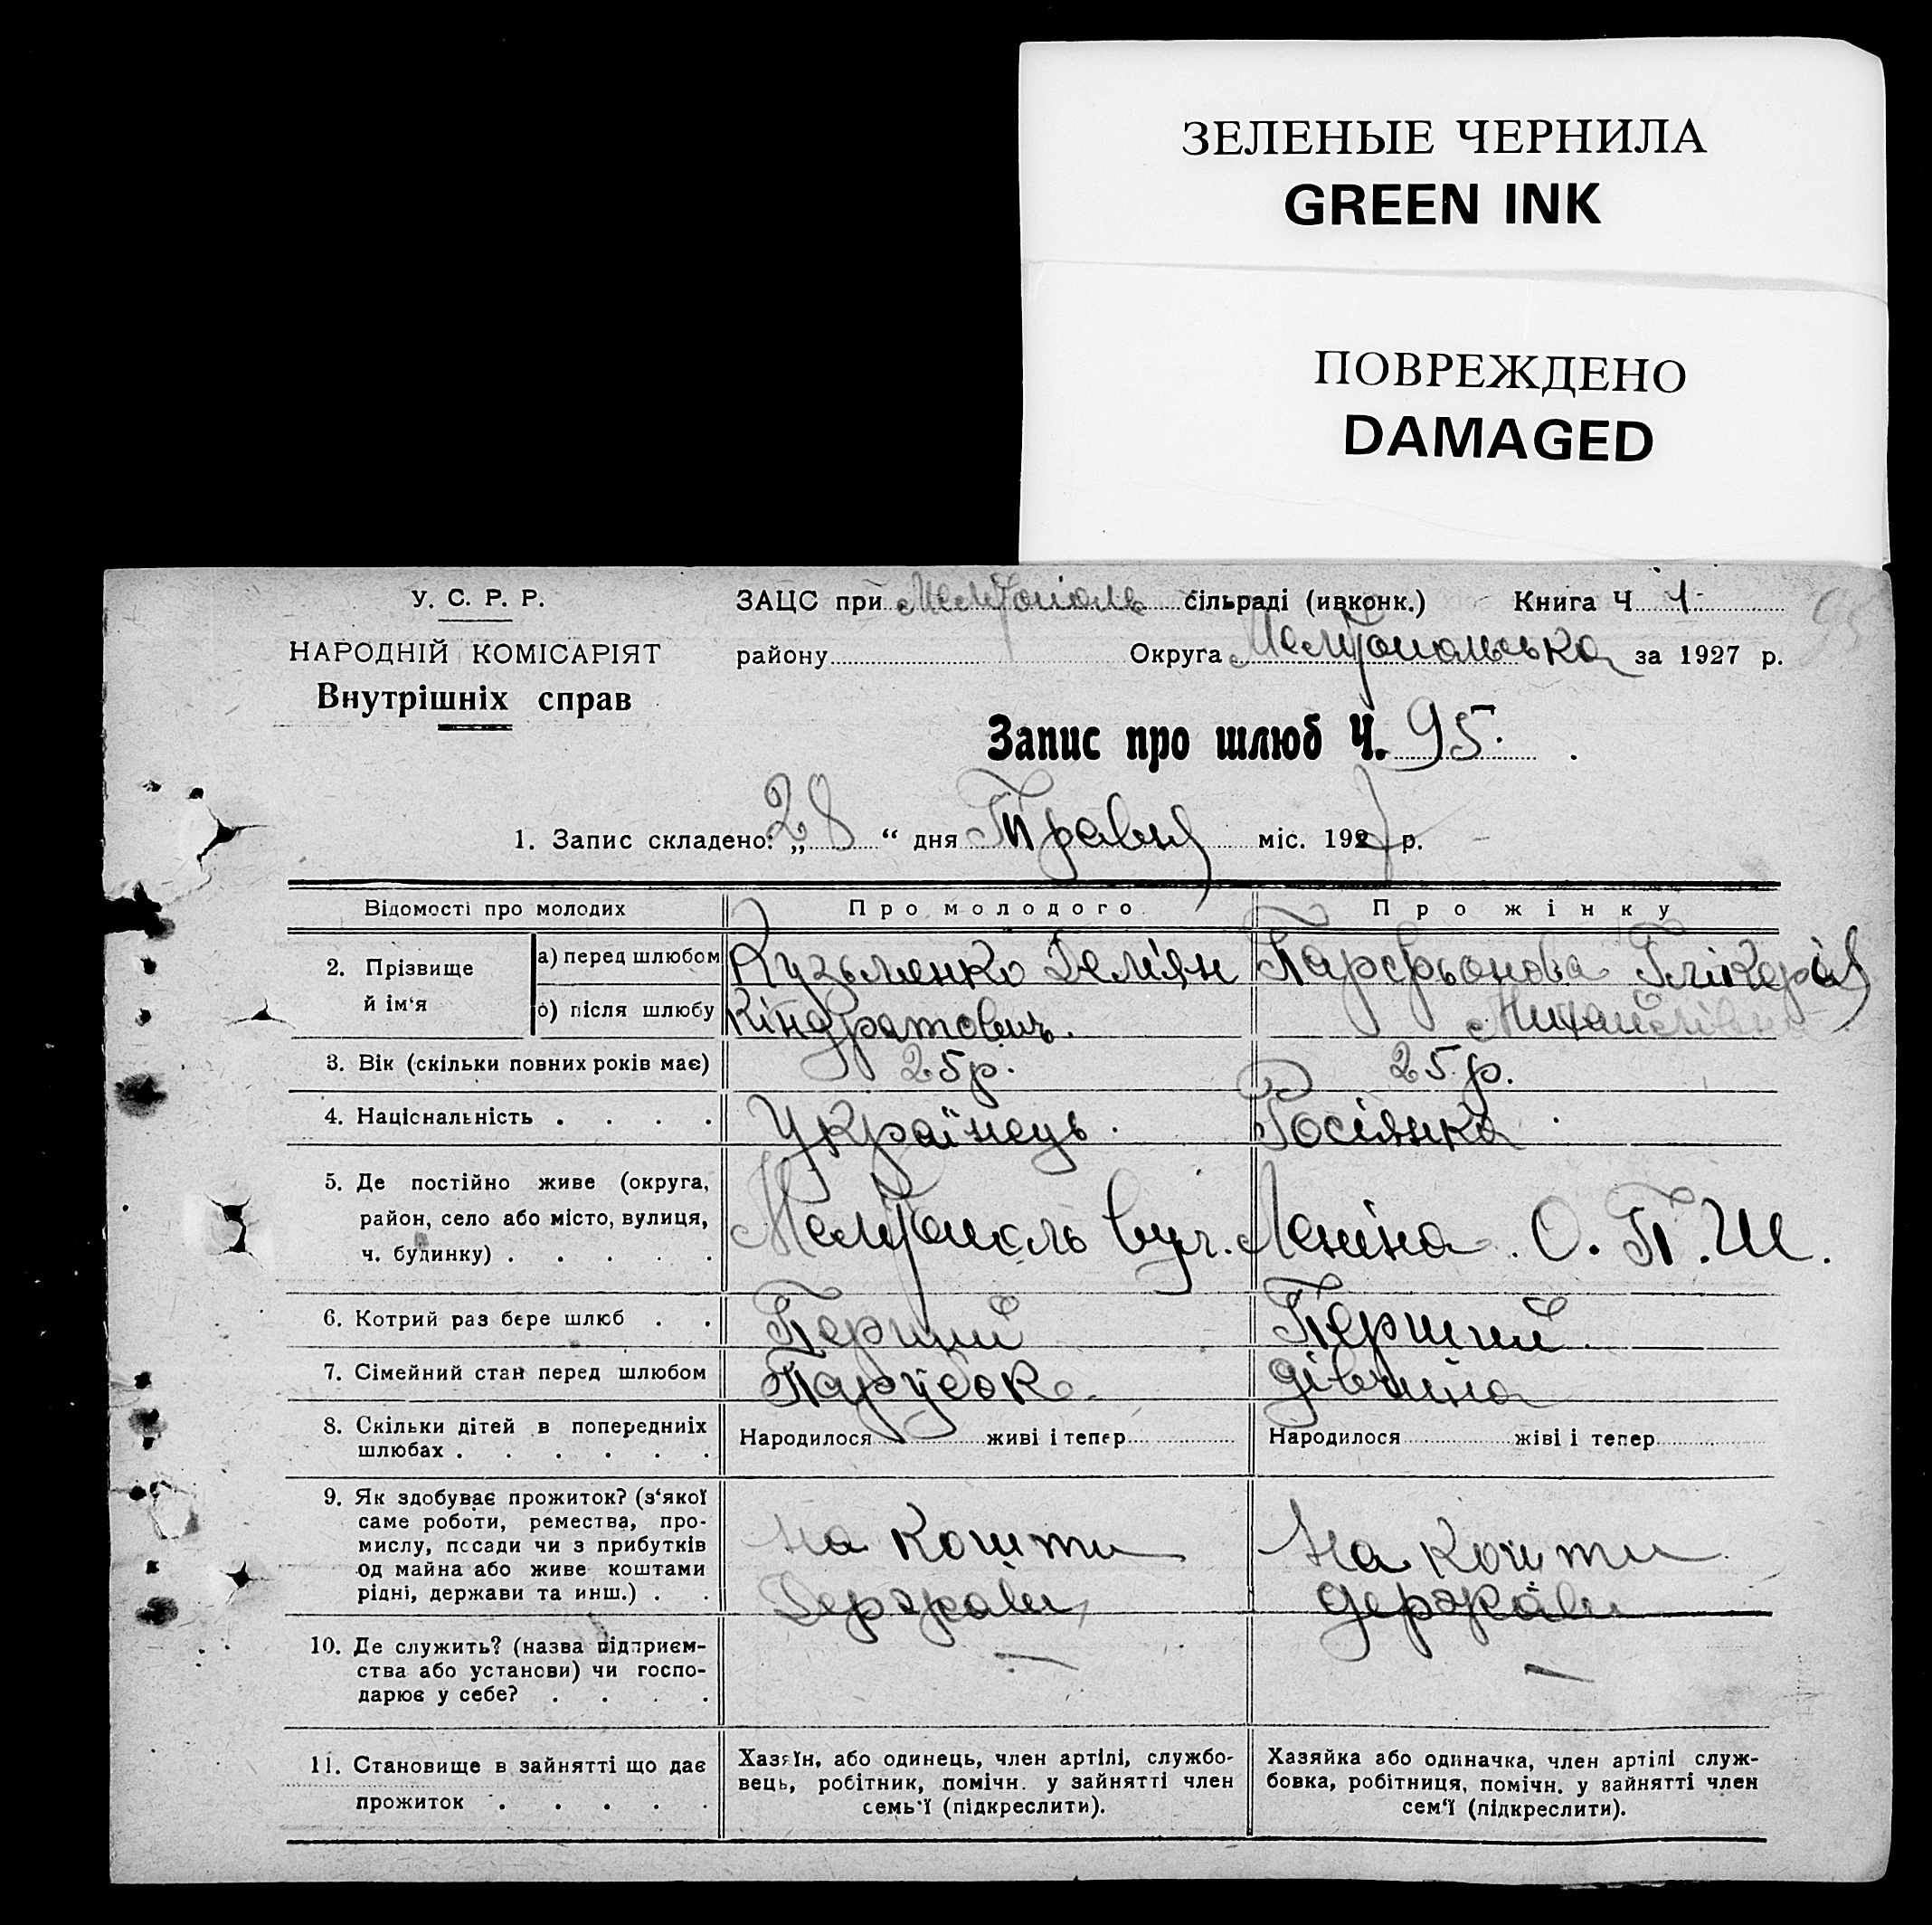 ЗЕЛЕНЫЕ ЧЕРНИЛА
GREEN INK
ПОВРЕЖДЕНО
DAMAGED
У. С. Р. Р.
НАРОДНІЙ КОМІСАРІЯТ
Внутрішніх справ
ЗАЦС при Мелітополь сільраді (ивконк.) Книга Ч 1 95
району Округа Мелітопольська за 1927 р.
Запис про шлюб Ч. 95.
1. Запис складено: „28“ дня Травня міс. 1927 р.
Відомості про молодих
Про молодого
Про жінку
2. Прізвище й ім‘я
а) перед шлюбом
Кузьменко Дем'ян
Парфьонова Глікерія
б) після шлюбу
Кіндратович.
Михайлівна
3. Вік (скільки повних років має)
25 р.
25 р.
4. Національність . . . .
Українець.
Росіянка
5. Де постійно живе (округа,
район, село або місто, вулиця,
ч. будинку) . . . . .
Мелітополь вул. Леніна. О. П. Ш.
6. Котрий раз бере шлюб . .
Перший
Перший
7. Сімейний стан перед шлюбом
Парубок
дівчина
8. Скільки дітей в попередниіх
шлюбах . . . . . .
Народилося живі і тепер
Народилося жіві і тепер
9. Як здобуває прожиток? (з‘якої
саме роботи, ремества, про-
мислу, посади чи з прибутків
од майна або живе коштами
рідні, держави та инш.) . .
на кошти
Держави
На кошти
держави
10. Де служить? (назва підприєм-
ства або установи) чи госпо-
дарює у себе? . . . .
—
—
11. Становище в зайнятті що дає
прожиток . . . . .
Хазяїн, або одинець, член артілі, службо-
вець, робітник, помічн. у зайнятті член
семь‘ї (підкреслити).
Хазяйка або одиначка, член артілі служ-
бовка, робітниця, помічн. у зайнятті член
сем‘ї (підкреслити).